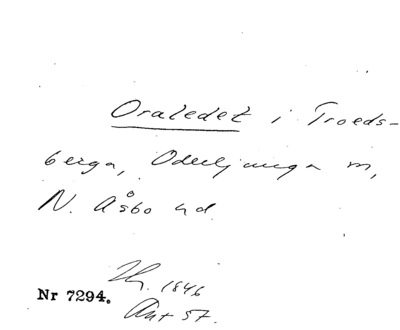 Oraledet i Troeds-
berga, Oderljunga m,
N. Åsbo hd.
1846
Nr 7294.
Akt 57.